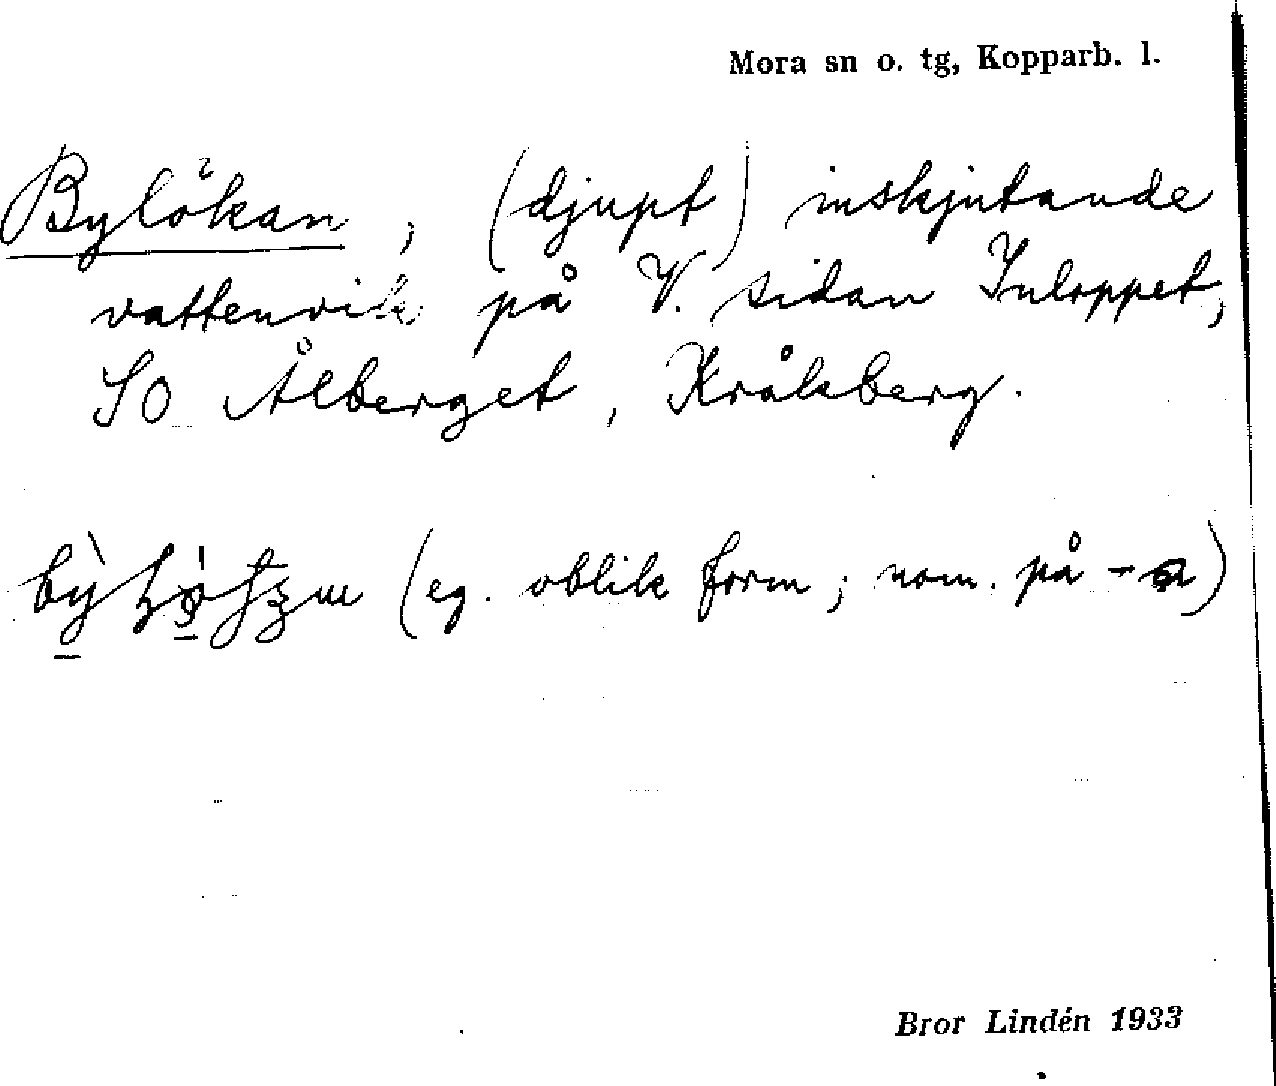 Mora sn o. tg, Kopparb. l.
Bylökan, (djupt) inskjutande
vattenvik på V. sidan Inloppet,
SO Ålberget, Kråkberg.
(eg. oblik form; nom. på -a)
Bror Lindén 1933